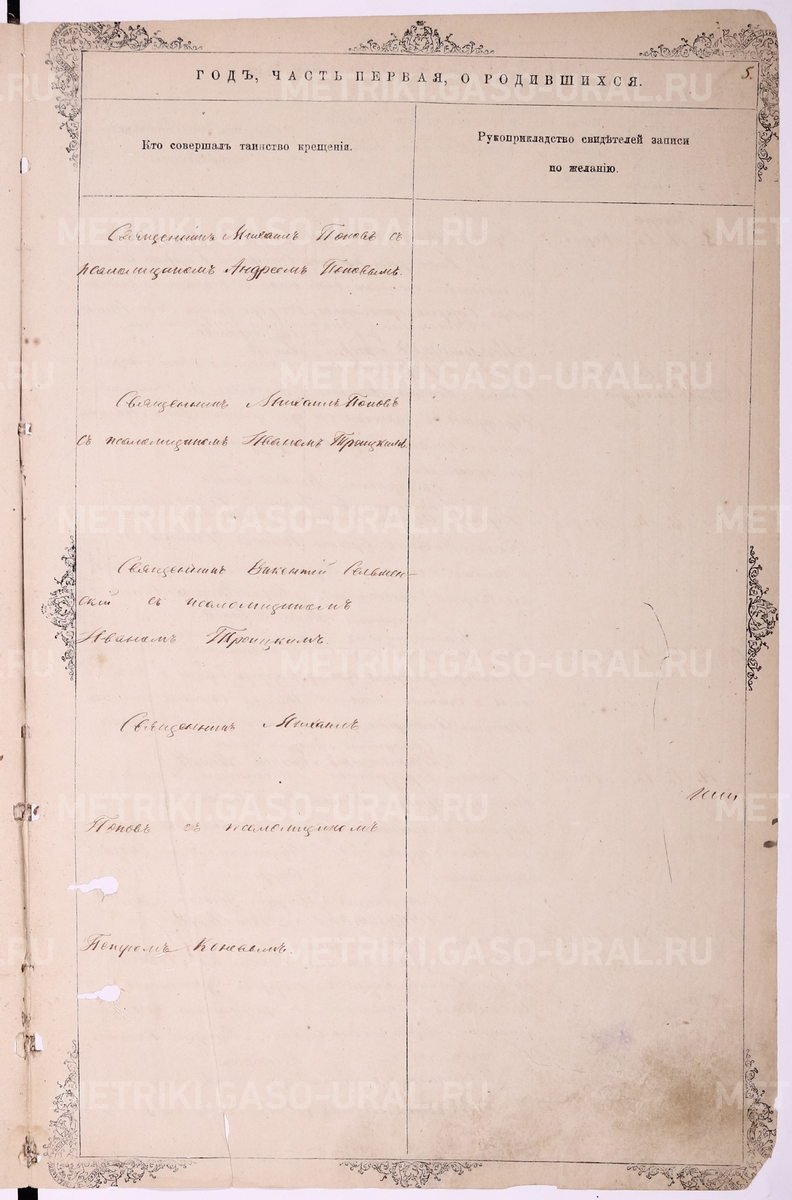 ГОДЪ, ЧАСТЬ ПЕРВАЯ, О РОДИВШИХСЯ.
5.
Кто совершалъ таинство крещенія.
Рукоприкладство свидѣтелей записи
по желанію.
Священникъ Михаилъ Поповъ съ
псаломщикомъ Андреемъ Поповымъ.
Священникъ Михаилъ Поповъ
съ псаломщикомъ Иваномъ Троицкимъ
Священникъ Викентій
скій съ псаломщикомъ
Иваномъ Троицкимъ.
Священникъ Михаилъ
Поповъ съ псаломщикомъ
Петромъ
METRIKI.GASO-URAL.RU